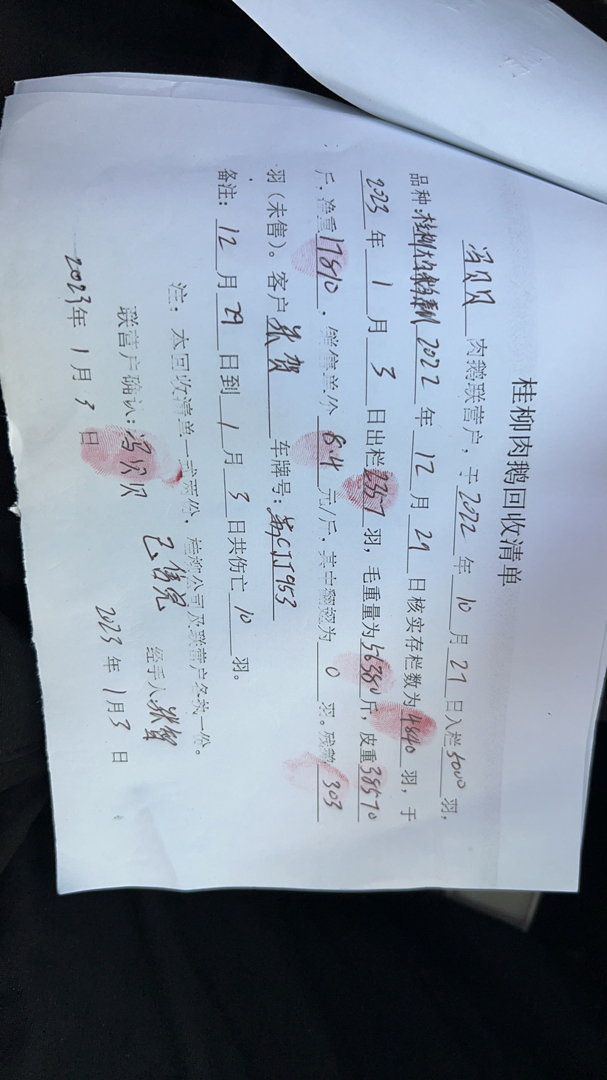 桂柳肉鹅回收清单
冯贝贝 肉鹅联营户，于 2022 年 10 月 21 日入栏 5000 羽，
品种 2022 年 12 月 29 日核实存栏数为 4840 羽，于
2023 年 1 月 3 日出栏 2357 羽，毛重量为 56380 斤，皮重 38570
斤，净重 17810 ，销售单价 8.4 元/斤，其中翻翅为 0 羽。残鹅 303
羽（未售）。客户 张贺 车牌号：苏CJJ953
备注： 12 月 29 日到 1 月 3 日共伤亡 10 羽。
注：本回收清单一式两份，公司及联营户各执一份。
联营户确认：冯贝贝 经手人 张贺
2023年 1 月 3 日 2023 年 1 月 3 日